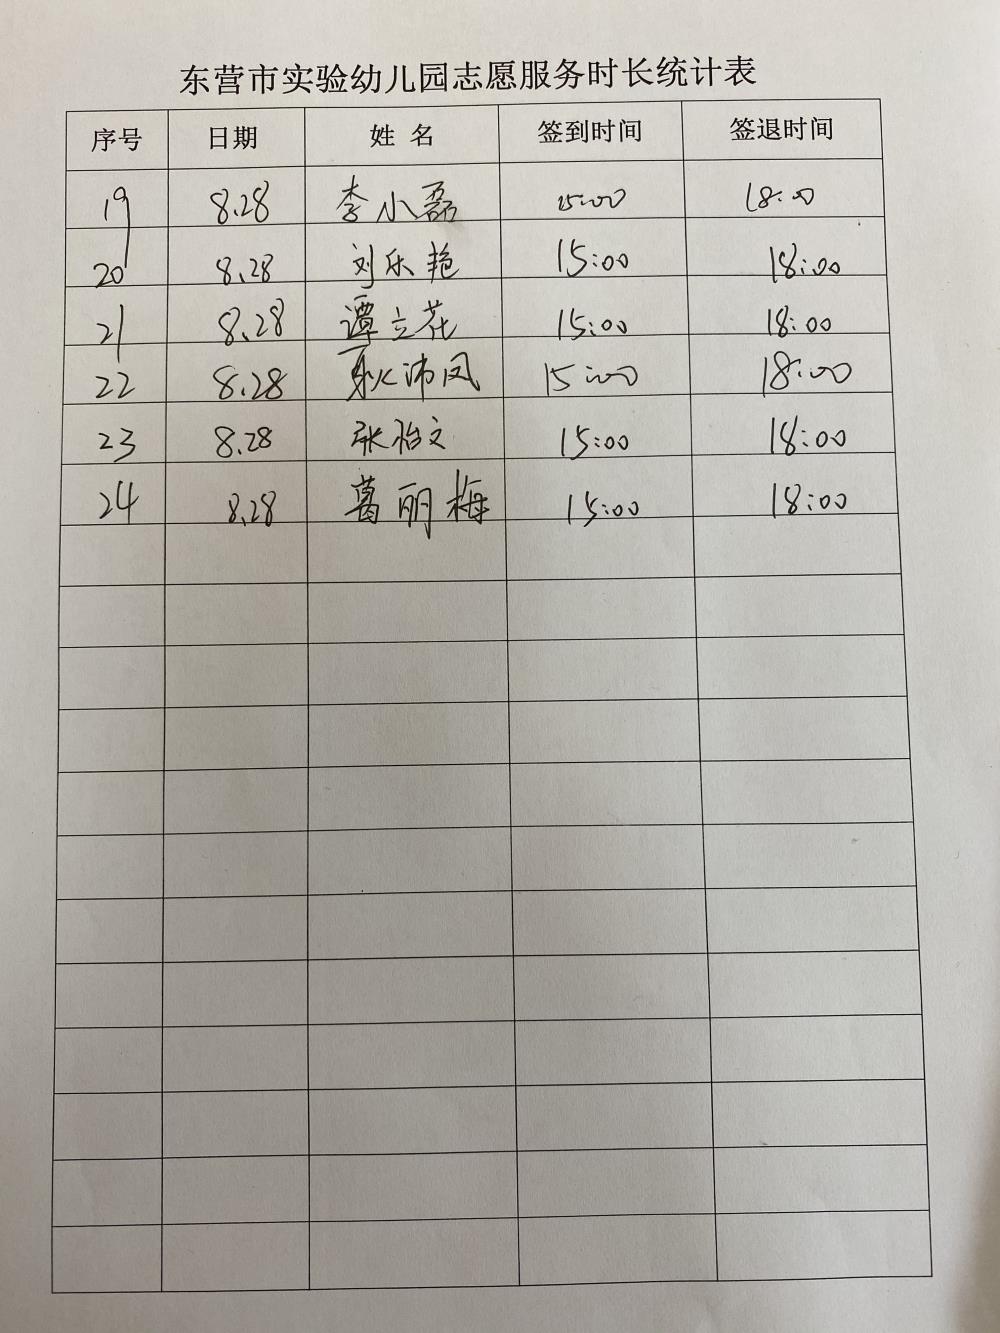 东营市实验幼儿园志愿服务时长统计表
序号 日期 姓 名 签到时间 签退时间
19 8.28 李小磊 15:00 18:00
20 8.28 刘乐艳 15:00 18:00
21 8.28 谭立花 15:00 18:00
22 8.28 沛凤 15:00 18:00
23 8.28 张怡文 15:00 18:00
24 8.28 葛丽梅 15:00 18:00